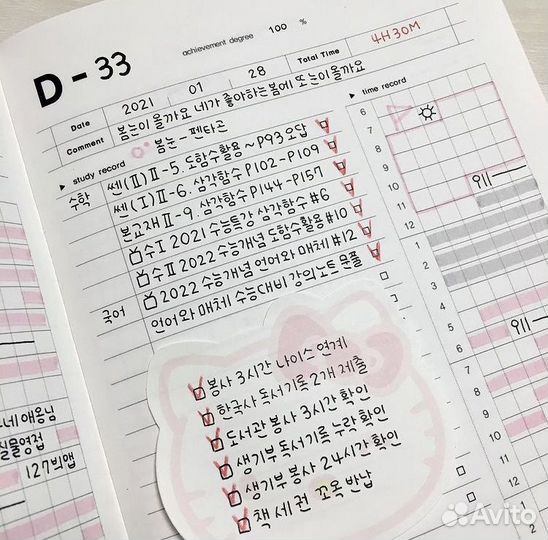 achievement degree 100 %
D-33
Date 2021 01 28 Total Time 4H 30M
Comment 봄눈이 올까요 네가 좋아하는 봄에 또 눈이 올까요
봄눈 - 펜타곤
▶ study record
▶ time record
수학 쎈(Ⅱ)Ⅱ-5. 도함수활용 ~P93 오답
쎈(Ⅰ)Ⅱ-6. 삼각함수 P102-P109
본교재 Ⅱ-9. 삼각함수 P144-P157
수Ⅰ 2021 수능특강 삼각함수 #6
수Ⅱ 2022 수능개념 도함수활용 #10
국어 2022 수능개념 언어와 매체 #12
언어와 매체 수능대비 강의노트 문풀
6
7
8
9
10
11
12
1
2
3
4
5
6
7
8
9
10
1
2
911
911
봉사 3시간 나이스 연계
한국사 독서기록 2개 제출
도서관 봉사 3시간 확인
생기부 독서기록 누락 확인
생기부 봉사 24시간 확인
책 세 권 꼬옥 반납
네 애옹님
실물영접
127빅앱
Avito